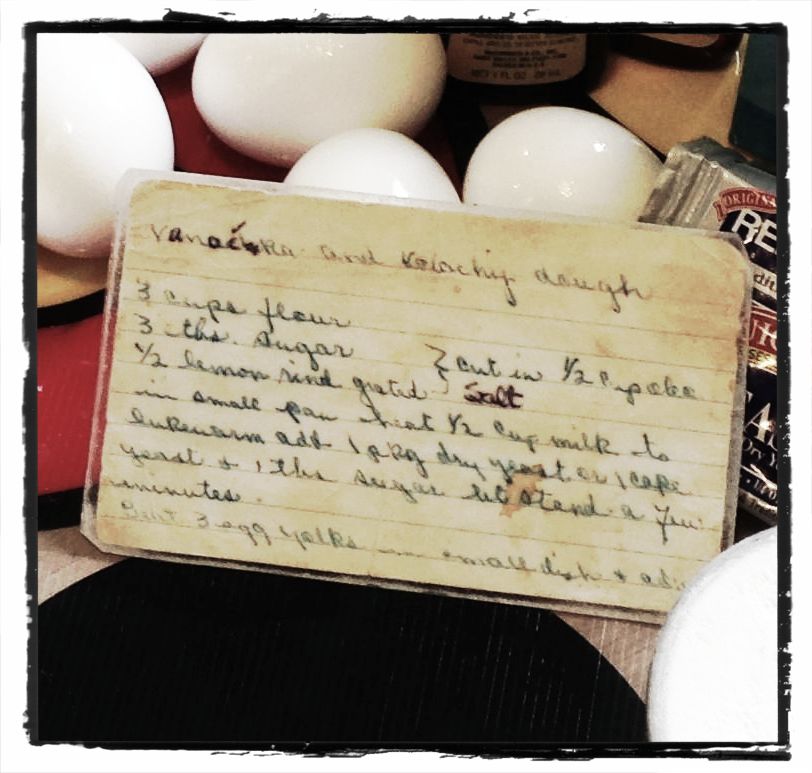 Vanočka and Kolachy dough
3 cups flour
3 tbs. sugar
1/2 lemon rind grated } cut in 1/2 c
Salt
in small pan heat 1/2 cup milk to
lukewarm add 1 pkg dry yeast or 1 cake
yeast + 1 tbs sugar let stand a few
minutes.
Beat 3 egg yolks in small dish + ad
ORIGINA
RE
NET 1 FL OZ